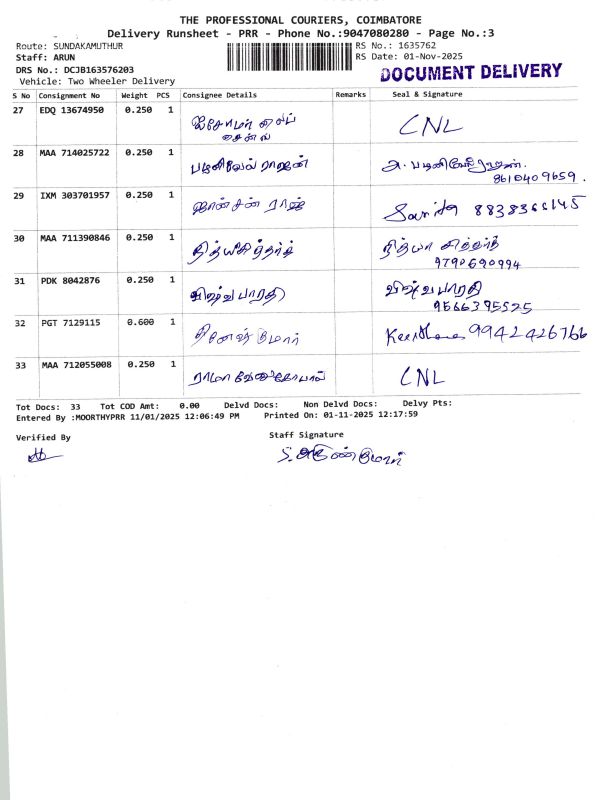 THE PROFESSIONAL COURIERS, COIMBATORE
Delivery Runsheet - PRR - Phone No.:9047080280 - Page No.:3
Route: SUNDAKAMUTHUR
RS No.: 1635762
Staff: ARUN
RS Date: 01-Nov-2025
DRS No.: DCJB163576203
DOCUMENT DELIVERY
Vehicle: Two Wheeler Delivery
S No Consignment No Weight PCS Consignee Details Remarks Seal & Signature
27 EDQ 13674950 0.250 1 CNL
28 MAA 714025722 0.250 1 பழனிவேல் ராஜன் அ. பழனிவேல்ராஜன்.
8610409659.
29 IXM 303701957 0.250 1 ஜான்சன் ராஜ்
30 MAA 711390846 0.250 1 நித்யசித்தார்த் நித்யா சித்தார்த்
9790690994
31 PDK 8042876 0.250 1 விஷ்வ பாரதி விஷ்வ பாரதி
9566395525
32 PGT 7129115 0.600 1 தினேஷ் குமார் Keerthana 9942426766
33 MAA 712055008 0.250 1 ராமா வேணுகோபால் CNL
Tot Docs: 33 Tot COD Amt: 0.00 Delvd Docs: Non Delvd Docs: Delvy Pts:
Entered By :MOORTHYPRR 11/01/2025 12:06:49 PM Printed On: 01-11-2025 12:17:59
Verified By
Staff Signature
S. அருண்குமார்